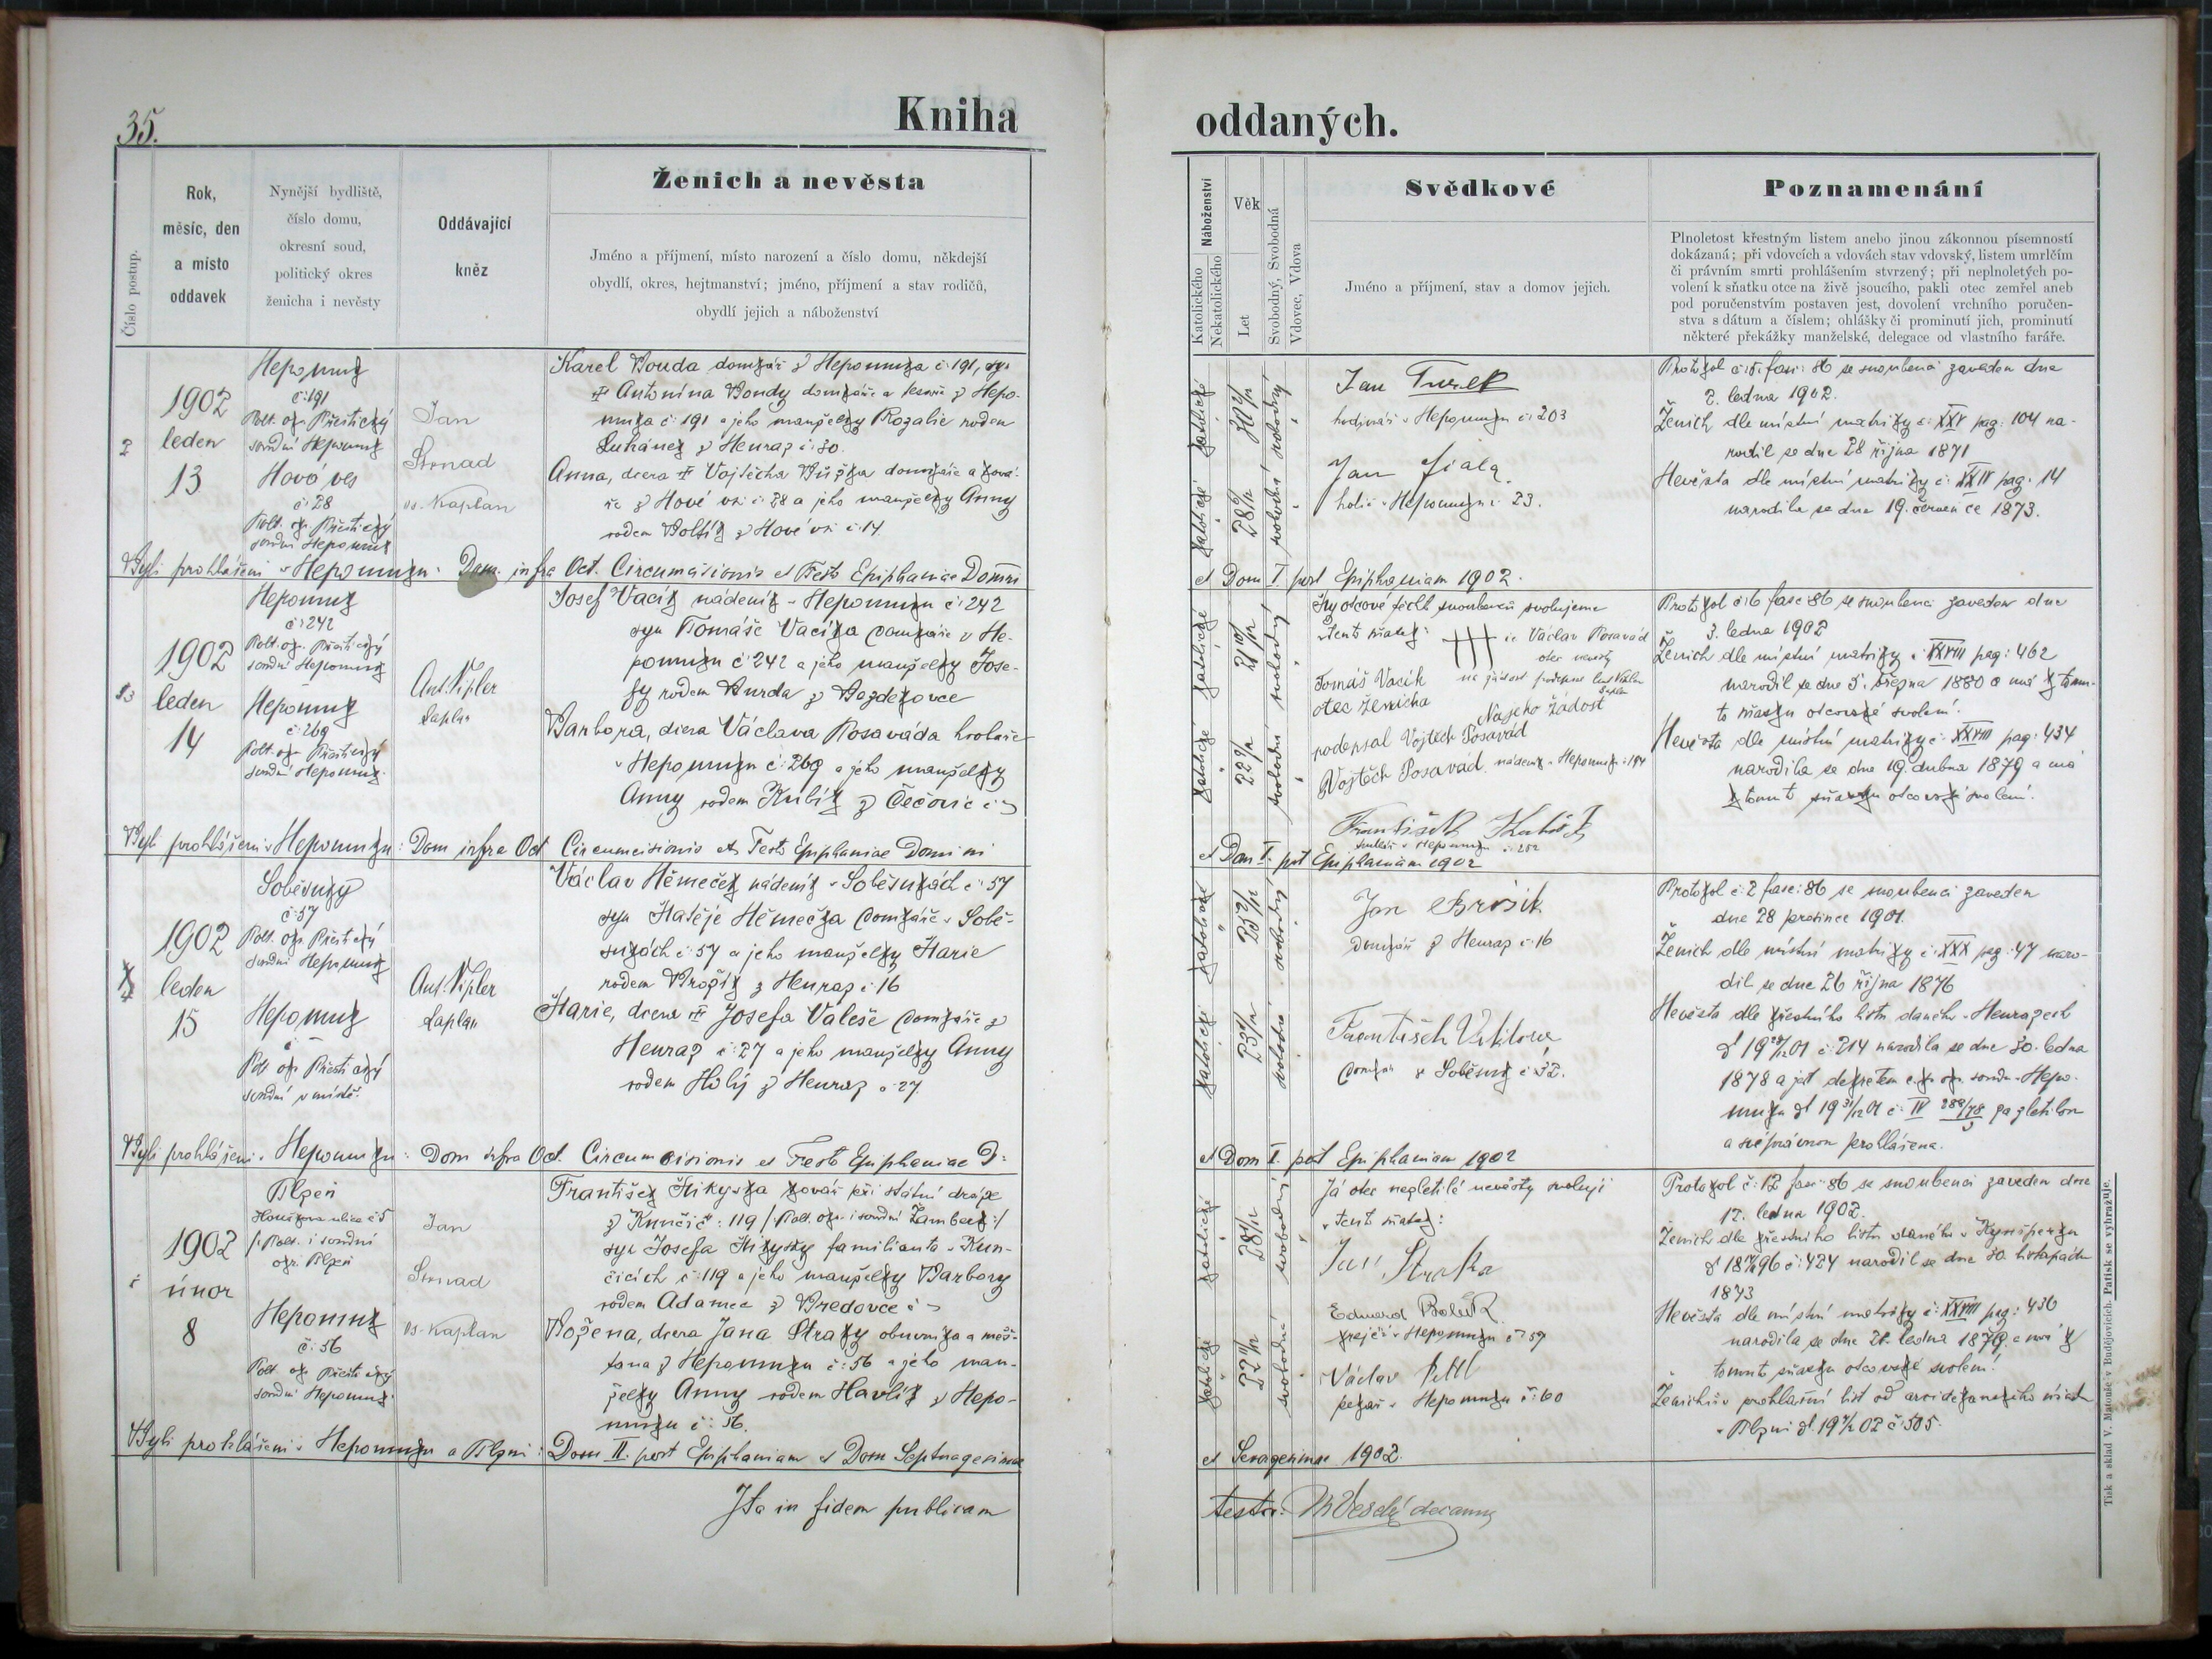 35.
Kniha
Číslo postup.
Rok,
měsíc, den
a místo
oddavek
Nynější bydliště,
číslo domu,
okresní soud,
politický okres
ženicha i nevěsty
Oddávající
kněz
Ženich a nevěsta
Jméno a příjmení, místo narození a číslo domu, někdejší
obydlí, okres, hejtmanství; jméno, příjmení a stav rodičů,
obydlí jejich a náboženství
2
1902
leden
13
Nepomuk
č: 191
Polit. okr. Přeštický
soudní Nepomuk
Nová ves
č: 28
Polit. okr. Přeštický
soudní Nepomuk
Jan
Strnad
Karel Bouda domkář z Nepomuka č: 191, syn
Antonína Boudy domkáře a tesaře z Nepo-
muka č: 191 a jeho manželky Rozalie rodem
z Neuraz č: 30.
Anna, dcera Vojtěcha domkáře a ková-
ře z Nové vsi č: 28 a jeho manželky Anny
rodem z Nové vsi č: 14.
Byli prohlášeni v Nepomuku: Dom. infra Oct. Circumcisionis et Festo Epiphaniae Domini
3
1902
leden
14
Nepomuk
č: 242
Polit. okr. Přeštický
soudní Nepomuk
Nepomuk
č: 269
Polit. okr. Přeštický
soudní Nepomuk
Ant. Vipler
kaplan
Josef Vacík nádeník v Nepomuku č: 242
syn Tomáše Vacíka domkáře v Ne-
pomuku č: 242 a jeho manželky Jose-
fy rodem Burda z Bezděkovce
Barbora, dcera Václava Posaváda hrobaře
v Nepomuku č: 269 a jeho manželky
Anny rodem Kubík z Čečovic č: –
Byli prohlášeni v Nepomuku: Dom infra Oct Circumcisionis et Festo Epiphaniae Domini
4
1902
leden
15
Soběsuky
č: 57
Polit. okr. Přeštický
soudní Nepomuk
Nepomuk
č –
Polit okr Přeštický
soudní v místě.
Ant. Vipler
kaplan
Václav Němeček nádeník v Soběsukách č: 57
syn Matěje Němečka domkáře v Sobě-
sukách č: 57 a jeho manželky Marie
rodem Brožík z Neuraz č: 16
Marie, dcera Josefa Valeše domkáře z
Neuraz č: 27 a jeho manželky Anny
rodem Holý z Neuraz č: 27.
Byli prohlášeni v Nepomuku: Dom infra Oct. Circumcisionis et Festo Epiphaniae D:
1902
únor
8
Plzeň
ulice č: 5
/: Polit. i soudní
okr. Plzeň
Nepomuk
č: 56
Polit okr Přeštický
soudní Nepomuk
Jan
Strnad
František Mikyska kovář při státní dráze
z Kunčic č: 119 /: Polit. okr. i soudní Žamberk :/
syn Josefa Mikysky familianta v Kun-
čicích č: 119 a jeho manželky Barbory
rodem Adamec z Bredovce č: –
Božena, dcera Jana Straky obuvníka a měš-
ťana z Nepomuku č: 56 a jeho man-
želky Anny rodem Havlík z Nepo-
muku č: 56.
Byli prohlášeni v Nepomuku a Plzni: Dom II. post Epiphaniam et Dom Septuagesimae
Ita in fidem publicam
oddaných.
Náboženství
Katolického
Nekatolického
Věk
Let
Svobodný, Svobodná
Vdovec, Vdova
Svědkové
Jméno a příjmení, stav a domov jejich.
Poznamenání
Plnoletost křestným listem anebo jinou zákonnou písemností
dokázaná; při vdovcích a vdovách stav vdovský, listem umrlčím
či právním smrti prohlášením stvrzený; při neplnoletých po-
volení k sňatku otce na živě jsoucího, pakli otec zemřel aneb
pod poručenstvím postaven jest, dovolení vrchního poručen-
stva s dátum a číslem; ohlášky či prominutí jich, prominutí
některé překážky manželské, delegace od vlastního faráře.
katolické
svobodný
Jan Turek
hodinář v Nepomuku č: 203
Jan Fiala
holič v Nepomuku č: 23.
katolické
svobodná
Protokol č: 5. fasc: 86 se snoubenci zaveden dne
2. ledna 1902.
Ženich dle místní matriky č: XXV pag: 104 na-
rodil se dne 28 října 1871
Nevěsta dle místní matriky č: XXIV pag: 14
narodila se dne 19. července 1873.
et Dom I. post Epiphaniam 1902.
katolické
svobodný
My otcové těchto snoubenců svolujeme
v tento sňatek:
+++ Václav Posavád
otec nevěsty
Tomáš Vacík
otec ženicha
Na jeho žádost
podepsal Vojtěch Posavád
Vojtěch Posavád. nádeník v Nepomuku č: 194
František
katolické
svobodná
Protokol č: 6 fasc: 86 se snoubenci zaveden dne
3. ledna 1902
Ženich dle místní matriky č: XXVIII pag: 462
narodil se dne 5. března 1880 a má k tomu-
to sňatku otcovské svolení.
Nevěsta dle místní matriky č: XXVIII pag: 434
narodila se dne 19. dubna 1879 a má
k tomuto sňatku otcovské svolení.
et Dom I. post Epiphaniam 1902
katolické
svobodný
Jan Brosik
domkář z Neuraz č: 16
František Viktora
domkář z Soběsuk č: 32.
katolické
svobodná
Protokol č: 2 fasc: 86 se snoubenci zaveden
dne 28 prosince 1901.
Ženich dle místní matriky č: XXX pag: 47 naro-
dil se dne 26 října 1876
Nevěsta dle křestního listu daného v Neurazech
č: 214 narodila se dne 30. ledna
1878 a jest dekretem c.k. okr. soudu v Nepo-
muku za zletilou
a svéprávnou prohlášena.
et Dom I. post Epiphaniam 1902
katolické
svobodný
Já otec nezletilé nevěsty svoluji
v tento sňatek:
Jan Straka
Eduard
krejčí v Nepomuku č: 59
Václav
pekař v Nepomuku č: 60
katolické
svobodná
Protokol č: 12 fasc: 86 se snoubenci zaveden dne
12. ledna 1902.
Ženich dle křestního listu daného v
č: 424 narodil se dne 30. listopadu
1873
Nevěsta dle místní matriky č: XXVIII pag: 430
narodila se dne 21. ledna 1879. a má k
tomuto sňatku otcovské svolení.
Ženichův prohlašní list od
v Plzni č: 505.
et Sexagesimae 1902.
testor: decanus
Tisk a sklad V. Matouše v Budějovicích. Patisk se vyhražuje.